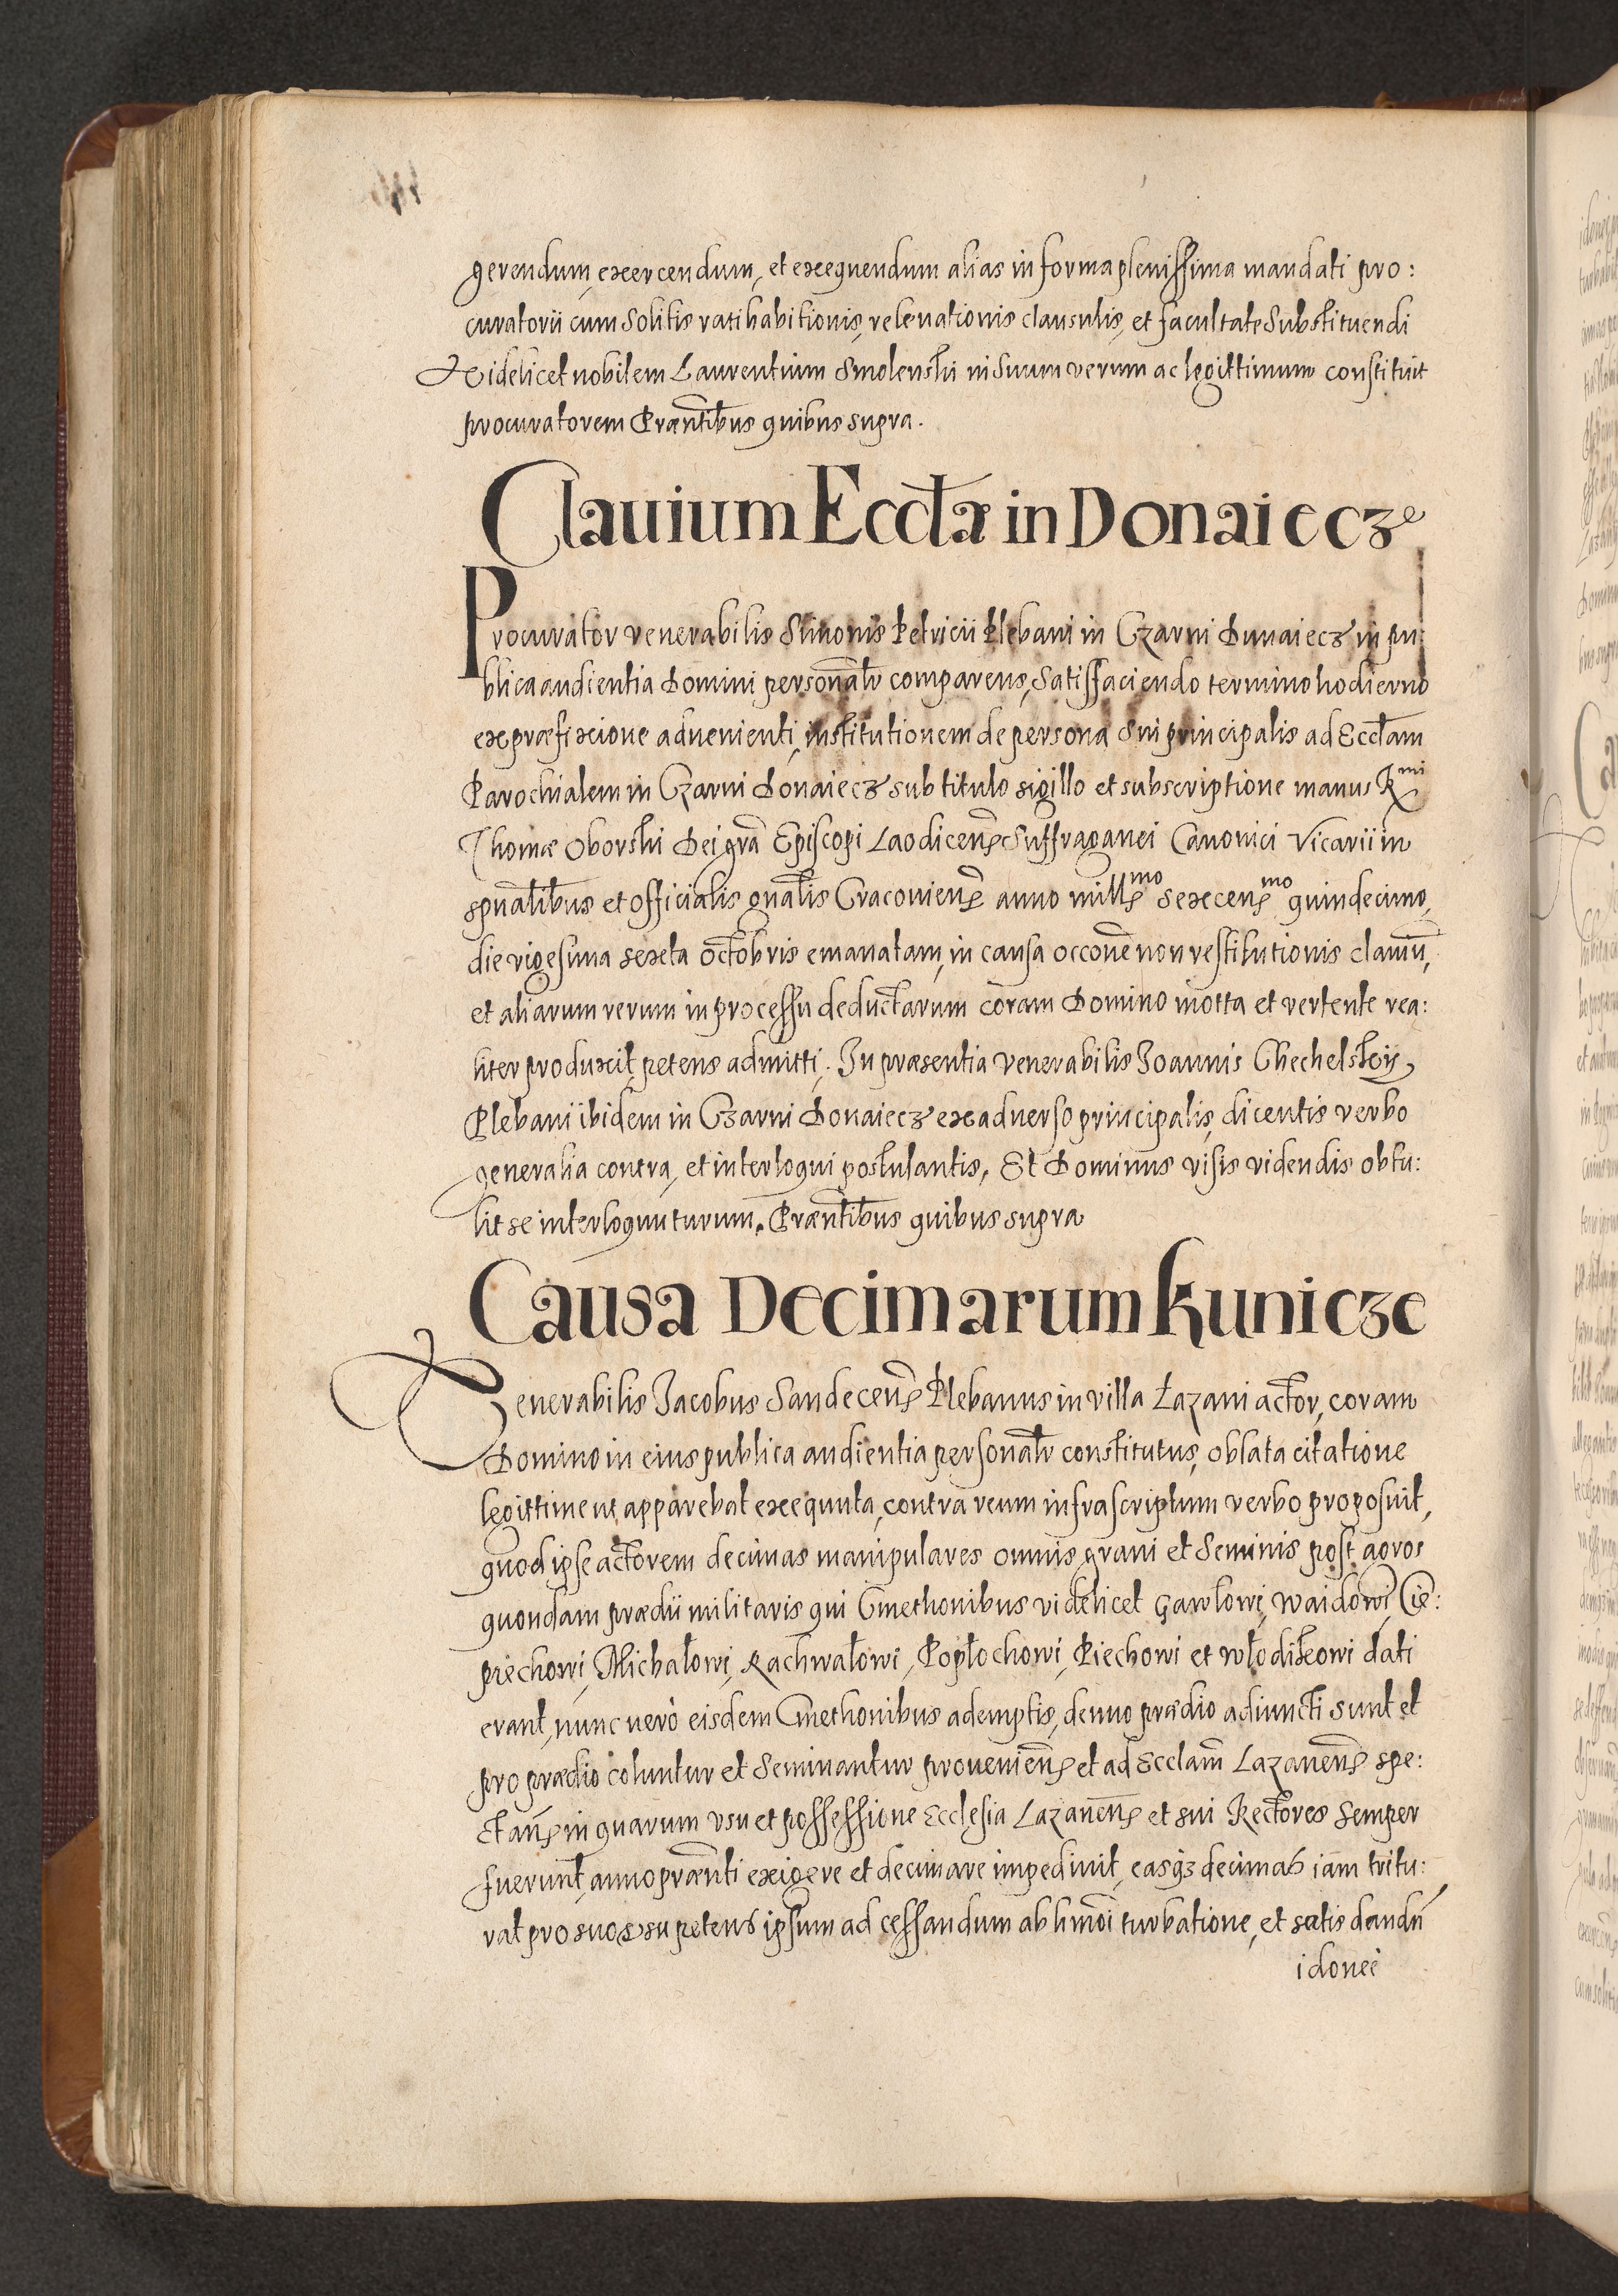 gerendum, exercendum, et exequendum alias in forma plenissima mandati pro:
curatorii cum solitis ratihabitionis, relevationis clausulis, et facultate substituendi
Videlicet nobilem Laurentium Smolenski in suum verum ac legittimum constituit
procuratorem Præntibus quibus supra.
Clauium Eccłæ in Donaiecz
Procurator venerabilis Simonis Petricii Plebani in Czarni Dunaiecz in pu:
blica audientia Domini personalr comparens, satisfaciendo termino hodierno
ex præfixione aduenienti, institutionem de persona sui principalis ad Eccłam
Parochialem in Czarni Donaiecz sub titulo sigillo et subscriptione manus Rmi
Thomæ Oborski Dei gra Episcopi Laodicens Suffraganei Canonici Vicarii in
spualibus et officialis gnalis Cracoviens anno millmo sexcenmo quindecimo,
die vigesima sexta Octobris emanatam, in causa occone non restitutionis clauiu,
et aliarum rerum in processu deductarum coram Domino motta et vertente rea:
liter produxit, petens admitti. In præsentia venerabilis Joannis Chechelsky
Plebani ibidem in Czarni Donaiecz ex adverso principalis, dicentis verbo
generalia contra, et interloqui postulantis, Et Dominus visis videndis obtu:
lit se interloquuturum. Præntibus quibus supra
Causa Decimarum Kunicze
Venerabilis Jacobus Sandecens Plebanus in villa Łazani actor, coram
Domino in eius publica audientia personalr constitutus, oblata citatione
legittime ut apparebat exequuta, contra reum infrascriptum verbo proposuit,
quod ipse actorem decimas manipulares omnis grani et seminis post agros
quondam prædii militaris qui Cmethonibus videlicet Gawlowi, Waidowi, Cie:
piechowi, Michałowi, Rachwałowi, Popłochowi, Piechowi et Włodikowi dati
erant, nunc verò eisdem Cmethonibus ademptis, denuo prædio adiuncti sunt et
pro prædio coluntur et seminantur proueniens et ad Ecclam Lazanens spe:
ctans in quarum vsu et possessione Ecclesia Lazanens et sui Rectores semper
fuerunt, anno prænti exigere et decimare impediuit, easq3 decimas iam tritu:
rat pro suo vsu petens ipsum ad cessandum ab hmoi turbatione, et satis dandu
idonei